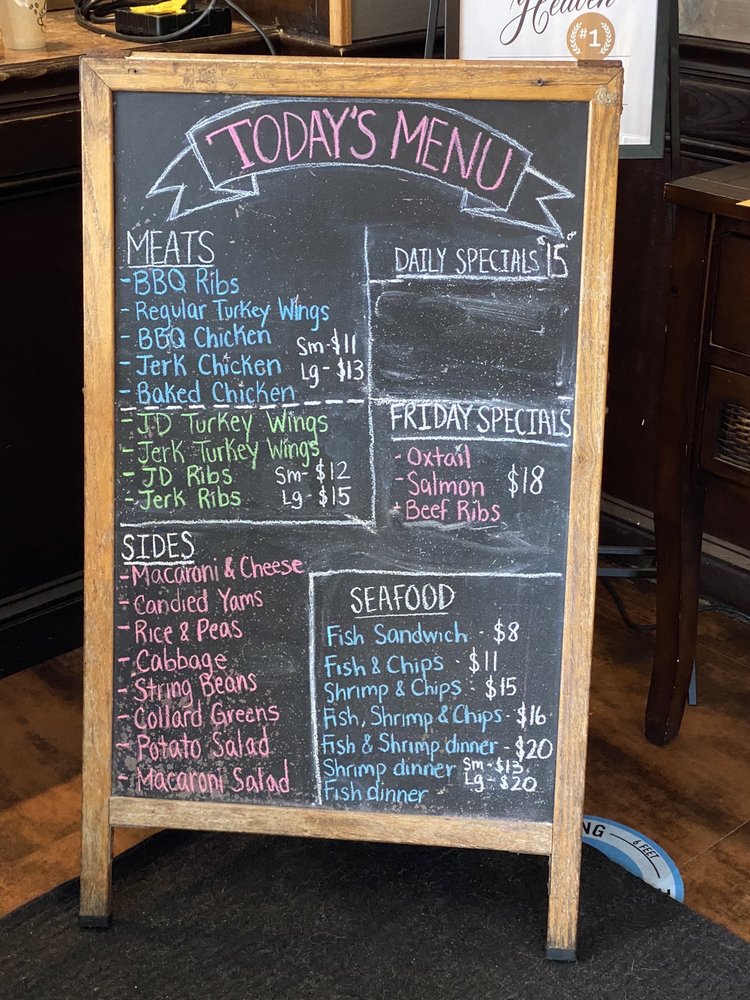 Heaven
#1
TODAY'S MENU
MEATS
- BBQ Ribs
- Regular Turkey Wings
- BBQ Chicken
- Jerk Chicken
- Baked Chicken
Sm-$11
Lg-$13
- JD Turkey Wings
- Jerk Turkey Wings
- JD Ribs
- Jerk Ribs
Sm-$12
Lg-$15
DAILY SPECIALS $15
FRIDAY SPECIALS
- Oxtail
- Salmon
- Beef Ribs
$18
SIDES
- Macaroni & Cheese
- Candied Yams
- Rice & Peas
- Cabbage
- String Beans
- Collard Greens
- Potato Salad
- Macaroni Salad
SEAFOOD
Fish Sandwich - $8
Fish & Chips - $11
Shrimp & Chips - $15
Fish, Shrimp & Chips - $16
Fish & Shrimp dinner - $20
Shrimp dinner Sm-$13
Fish dinner Lg-$20
6 FEET